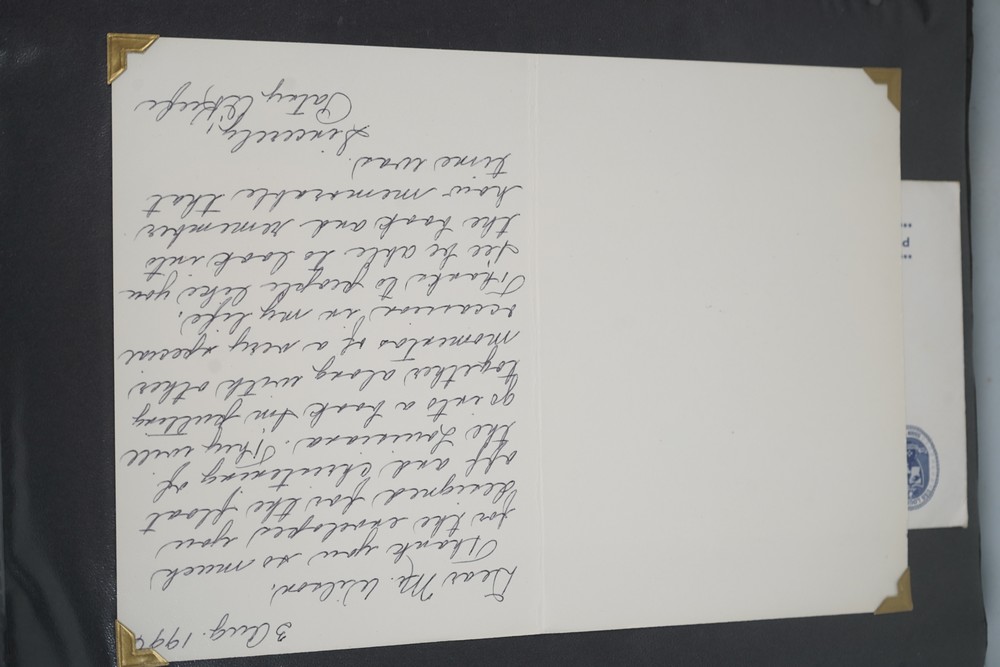 3 Aug. 199
Dear Mr. Wilson,
Thank you so much
for the envelopes you
designed for the float
off and christening of
the Louisiana. They will
go into a book I'm putting
together along with other
momentos of a very special
occasion in my life.
Thanks to people like you
I'll be able to look into
the book and remember
how memorable that
time was.
Sincerely,
Patsy O'Keefe